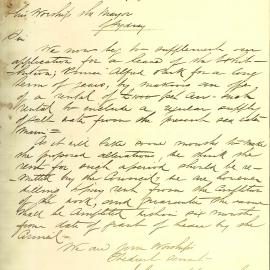 His Worship the Mayor
Sydney
Sir
We now beg to supplement our
application for a lease of the Exhibi-
tion, Prince Alfred Park for a long
term of years, by making an offer
of a rental of £1000 per Ann. such
rental to include a regular supply
of salt water from the present sea water
main.
As it will take some months to make
the proposed alterations, we think the
rent for such period should be re-
mitted by the Council; we are however
willing to pay rent from the completion
of the work, and guarantee the same
shall be completed within six months
from date of grant of lease by the
Council.
We are Your Worship's
Obedient Servants